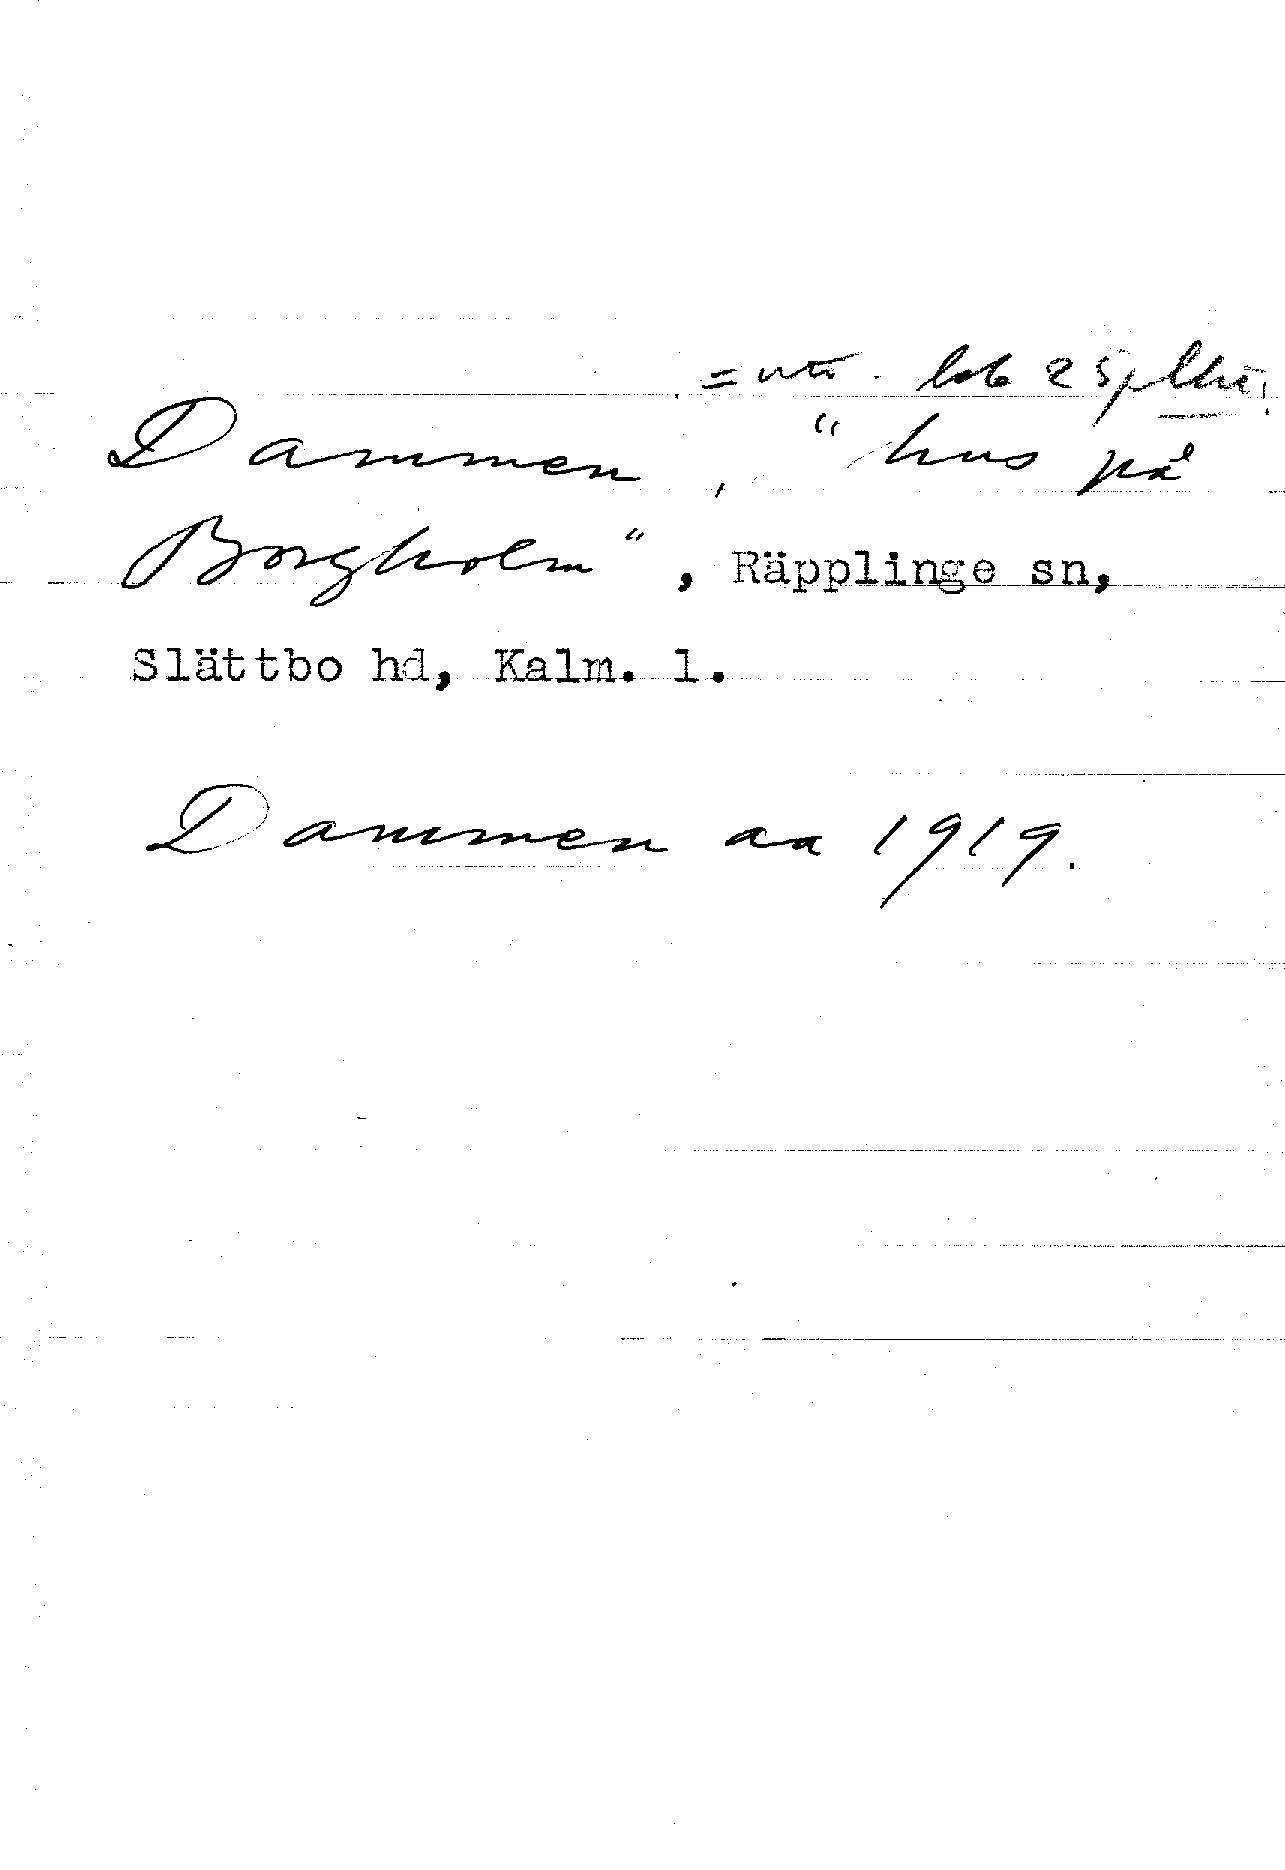 Dammen, "hus på
Borgholm", Räpplinge sn,
Slättbo hd, Kalm. l.
Dammen aa 1919.